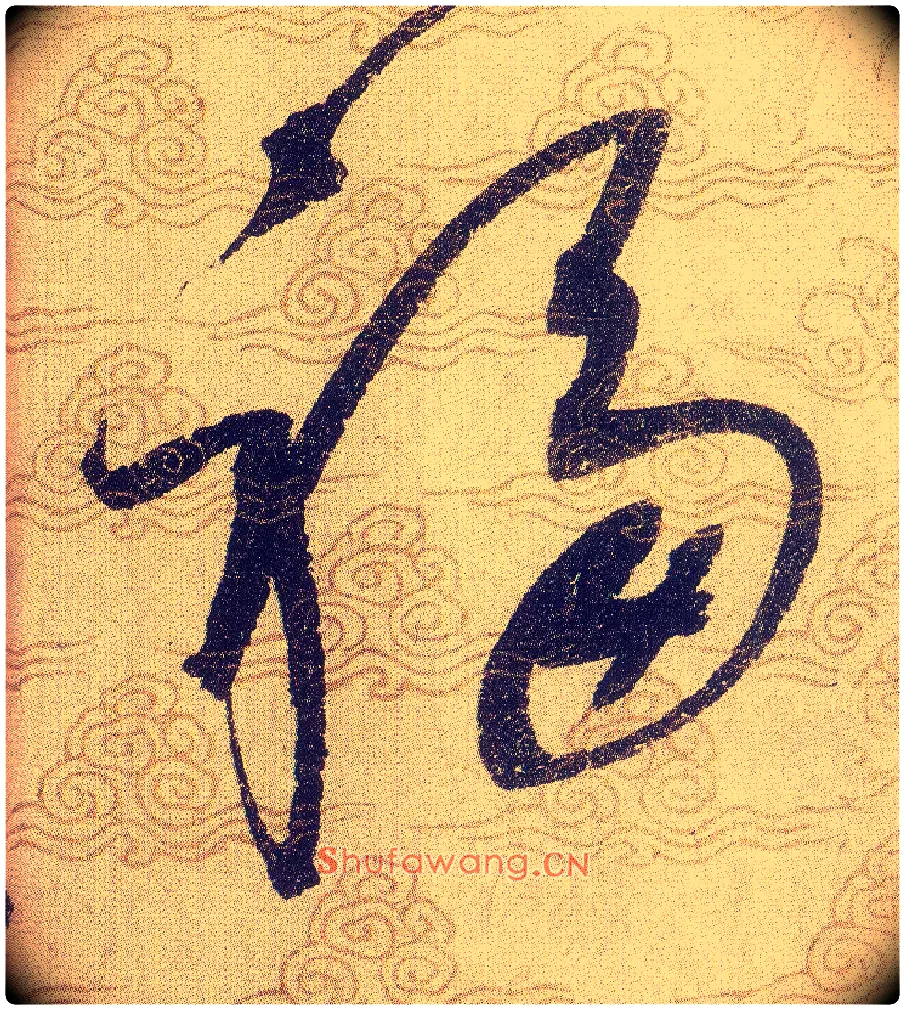 福
Shufawang.CN